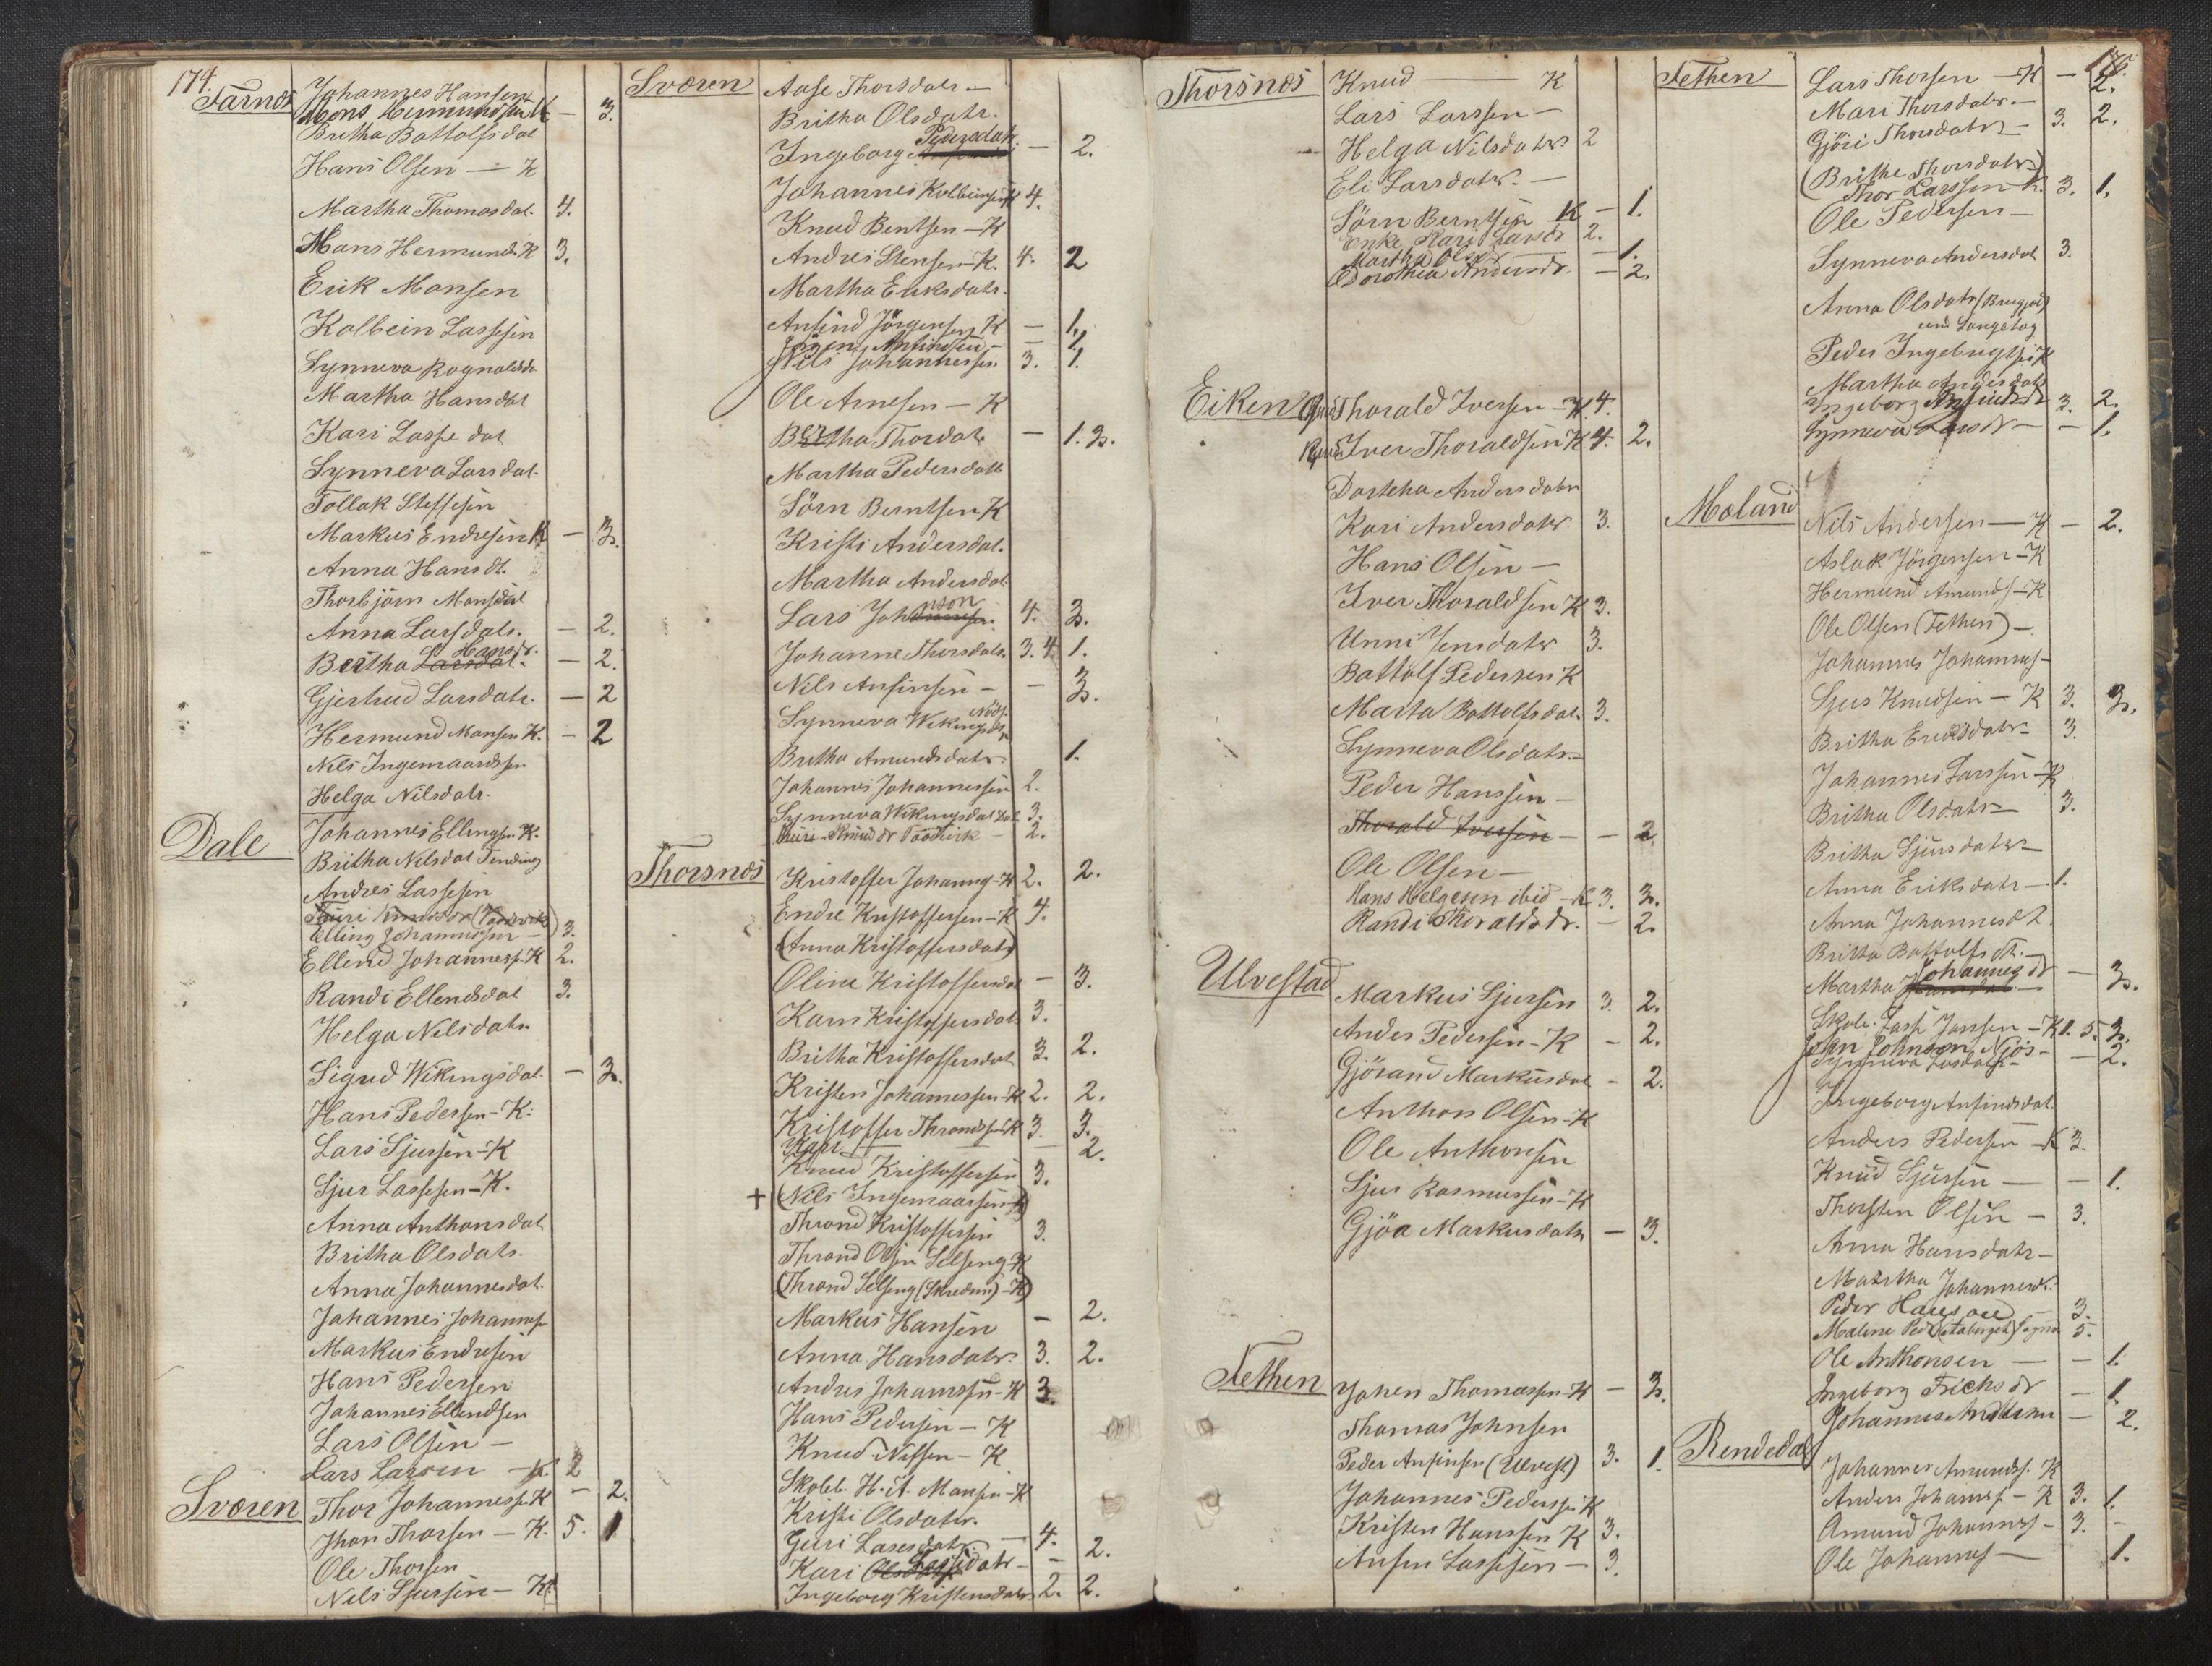 174.
Farnes
Johannes Hansen
Mons Hermundsen K — 3.
Britha Battolfsdat
Hans Olsen — K
Martha Thomasdat. 4.
Hans Hermunds. K 3.
Erik Monsen
Kolbein Lassesen
Synneva Rognaldsdr
Martha Hansdat
Kari Lassedat
Synneva Larsdat.
Tollak Steffesen
Markus Endresen K — 3.
Anna Hansdt.
Thorbjörn Monsdat
Anna Larsdatr. — 2.
Britha Larsdat. Hansdr. — 2.
Gjertrud Larsdatr. — 2
Hermund Monsen K. — 2
Nils Ingemaardssen
Helga Nilsdatr.
Dale
Johannes Ellingsen K.
Britha Nilsdat Tending
Andres Lassesen
Elling Johannessen — 3.
Ellend Johanness. K 2.
Randi Ellendsdat 3.
Helga Nilsdatr.
Sigrid Wikingsdat. — 3.
Hans Pedersen - K.
Lars Sjursen - K
Sjur Lassesen - K.
Anna Anthonsdat
Britha Olsdatr.
Anna Johannesdat.
Johannes Johannes
Markus Endresen
Hans Pedersen
Johannes Ellendsen
Lars Olsen —
Lars Larsen — K. 2
Sværen
Thor Johanness. K — 2.
Jhon Thorsen — K. 5. 1
Ole Thorsen
Nils Sjursen — K
Sværen
Aase Thorsdatr —
Britha Olsdatr.
Ingeborg Pedersdatr. — 2.
Johannes Kolbeinsen K 4.
Knud Bentsen — K
Andres Stensen - K. 4. 2
Martha Eriksdatr.
Ansind Jörgensen K — 1.
Jörgen Anfindsen — — 1.
Nils Johannessen 3. 1.
Ole Arnesen — K
Bertha Thordatr — 1. 3.
Martha Pedersdatr
Sörn Berntsen K
Kristi Andersdat.
Martha Andersdat.
Lars Johnson 4. 3.
Johanne Thorsdatr. 3. 4. 1.
Nils Anfinsen — — 3.
Synneva Wikingsd
Britha Amundsdatr 1.
Johannes Johannessen 2.
Synneva Wikingsdat 3.
2.
Thorsnes
Kristoffer Johanns - K 2. 2.
Endre Kristoffersen - K 4.
(Anna Kristoffersdatr)
Oline Kristoffersdat — 3.
Kari Kristoffersdat 3.
Britha Kristoffersdat 3. 2.
Kristen Johannessen - K 2. 2.
Kristoffer Throndsen K 3. 3.
Kari — 2.
Knud Kristoffersen 3.
+ (Nils Ingemaarsen K)
Thrond Kristoffersen 3.
Thrond Olsen Selseng K
(Thrond Selseng (Skreden) - K)
Markus Hansen — 2.
Anna Hansdatr. 3. 2.
Andres Johanssen - K 3.
Hans Pedersen — K
Knud Nilsen — K
Skoleb. H. A. Monsen - K
Kristi Olsdatr.
Guri Lassesdatr. — 4.
Kari Olsdatr Lassedatr — — 2.
Ingeborg Kristensdatr 2. 2.
Thorsnes
Knud — K
Lars Larssen —
Helga Nilsdatr. 2
Eli Larsdatr. —
Sörn Berntsen K — 1.
Enke Kari Larsdr 2.
Martha Olsdr — 1.
Dorothea Andersdr. — 2.
Eiken
Thorald Iversen — K 4.
Iver Thoraldsen K 4. 2.
Dorthea Andersdatr
Kari Andersdatr. 3.
Hans Olsen —
Iver Thoraldsen K 3.
Unni Jensdatr 3.
Battolf Pedersen K
Marta Battolfsdat. 3.
Synneva Olsdatr. —
Peder Hanssen —
Thorald Iversen — — 2.
Ole Olsen —
Hans Helgesen ibid — K 3. 3.
Randi Thoraldsdr. — 2.
Ulvestad
Markus Sjursen 3. 2.
Andes Pedersen - K — 2.
Gjörand Markusdat — 2.
Anthon Olsen - K
Ole Anthonsen
Sjur Rasmussen - K
Gjöa Markusdatr — 3.
Fethen
Johen Thomassen - K — 3.
Thomas Johnsen
Peder Anfinsen (Ulvest) 3. 1.
Johannes Pederssen K
Kristen Hanssen K 3.
Anfin Lassesen — 3.
175.
Fethen
Lars Thorsen — K — 2.
Mari Thorsdatr —
Gjöri Thorsdatr — 3. 2.
(Brithe Thorsdatr)
Thor Larssen K. 3. 1.
Ole Pedersen —
Synneva Andersdat 3.
Anna Olsdatr
Peder Ingebrigtsen K
Martha Andersdatr
Ingeborg Anfindsdr 3. 2.
Synneva Larsdr — — 1.
Moland
Nils Andersen — K — 2.
Aslak Jörgensen — K
Hermund Amunds — K
Ole Olsen (Fethen) —
Johannes Johannes —
Sjur Knudsen — K 3. 3.
Britha Eriksdatr — 3.
Johannes Larssen — K
Britha Olsdatr — 3.
Britha Sjursdatr —
Anna Eriksdatr — 1.
Anna Johannesdt.
Britha Battolfsdt. —
Martha Johannesdr — 3.
Skole. Lasse Jansen — K 1. 5. 3.
John Johnson Njøs — — 2.
Ingeborg Anfindsdat.
Anders Pedersen — K 3.
Knud Sjursen — — 1.
Thorsten Olsen — 3.
Anna Hansdatr —
Martha Johannesd.
Peder Hansen — 3.
Malene 5.
Ole Anthonsen — — 1.
Ingeborg Frichsdr — 1.
Johannes Andersen — 2.
Rendedal
Johannes Amunds. K
Anders Johannes — K 3. 1.
Amund Johannes — 3. —
Ole Johannes — 1.